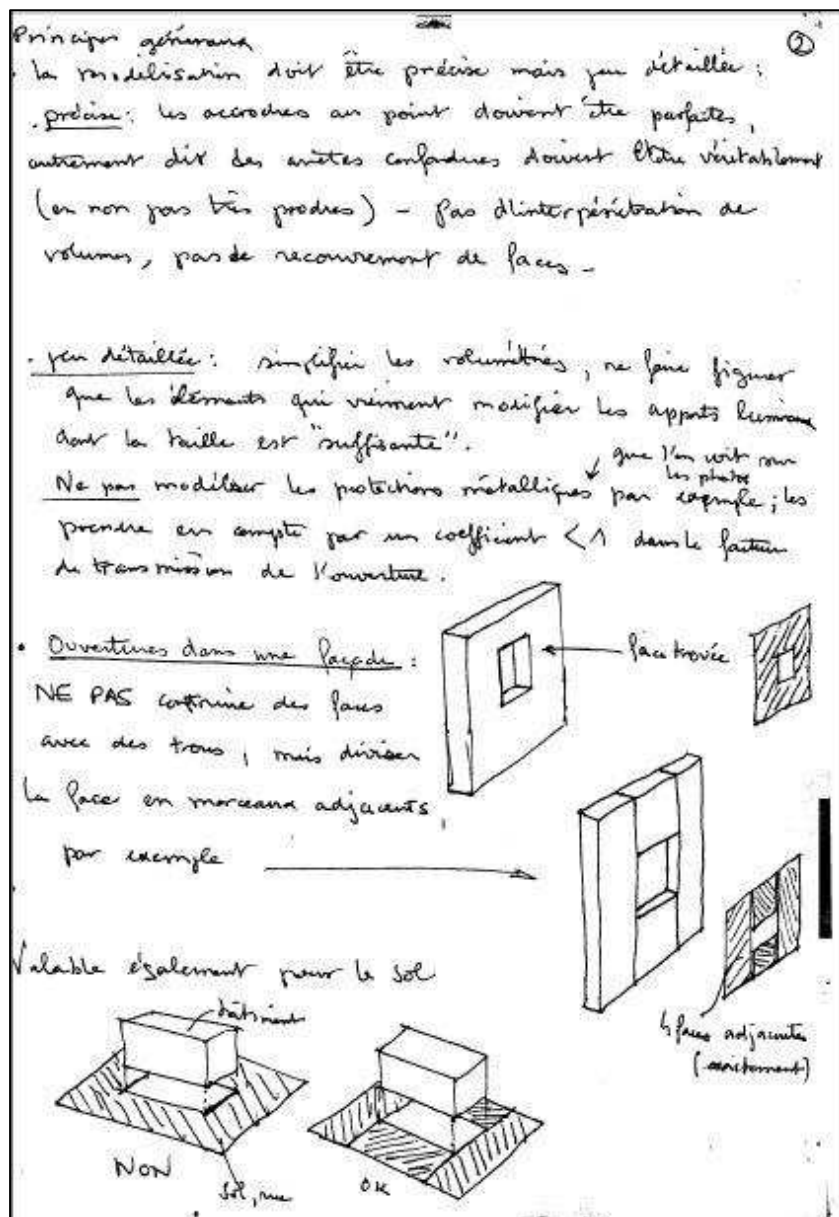 Principes généraux
②
. La modélisation doit être précise mais peu détaillée :
. précise : les accroches au point doivent être parfaites,
autrement dit des arêtes confondues doivent l'être véritablement
(en non pas très proches) - Pas d'interpénétration de
volumes, pas de recouvrement de faces -
. peu détaillée : simplifier les volumétries, ne faire figurer
que les éléments qui vraiment modifier les apports lumineux
dont la taille est "suffisante".
que l'on voit sur
les photos
Ne pas modéliser les protections métalliques par exemple ; les
prendre en compte par un coefficient < 1 dans le facteur
de transmission de l'ouverture.
. Ouvertures dans une façade :
face trouée
NE PAS construire des faces
avec des trous, mais diviser
la face en morceaux adjacents,
par exemple
Valable également pour le sol
bâtiment
4 faces adjacentes
(exactement)
NON
sol, rue
OK